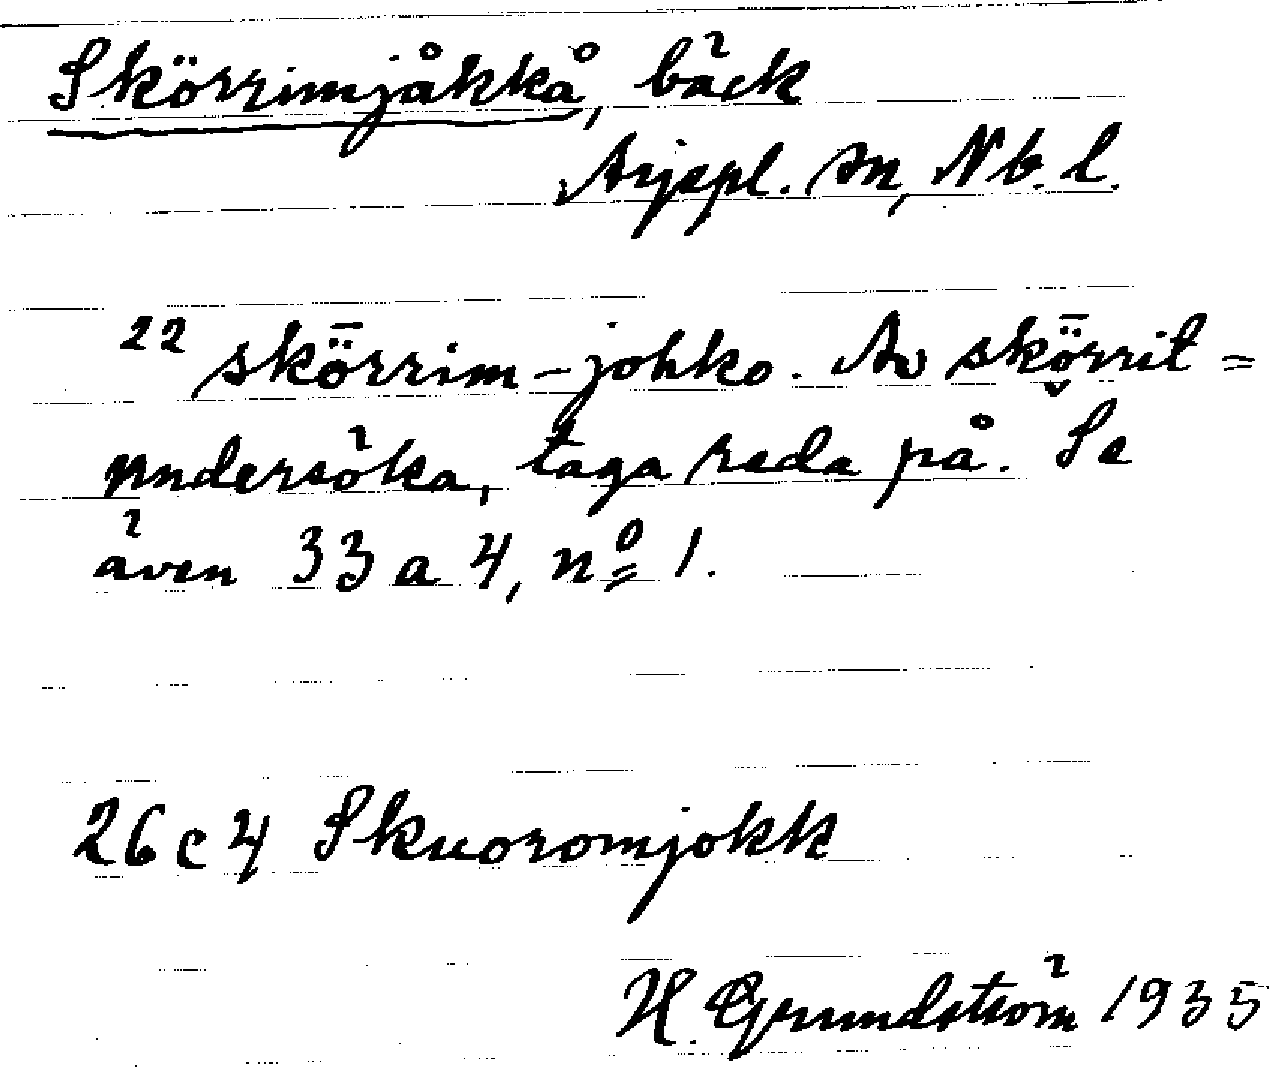 Skörrimjåkkå, bäck
Arjepl. sn, Nb. l.
22 skȫrrim-johko. Av skȫrrit =
undersöka, taga reda på. Se
även 33 a 4, nº 1.
26 c 4 Skuoromjokk
H. Grundström 1935